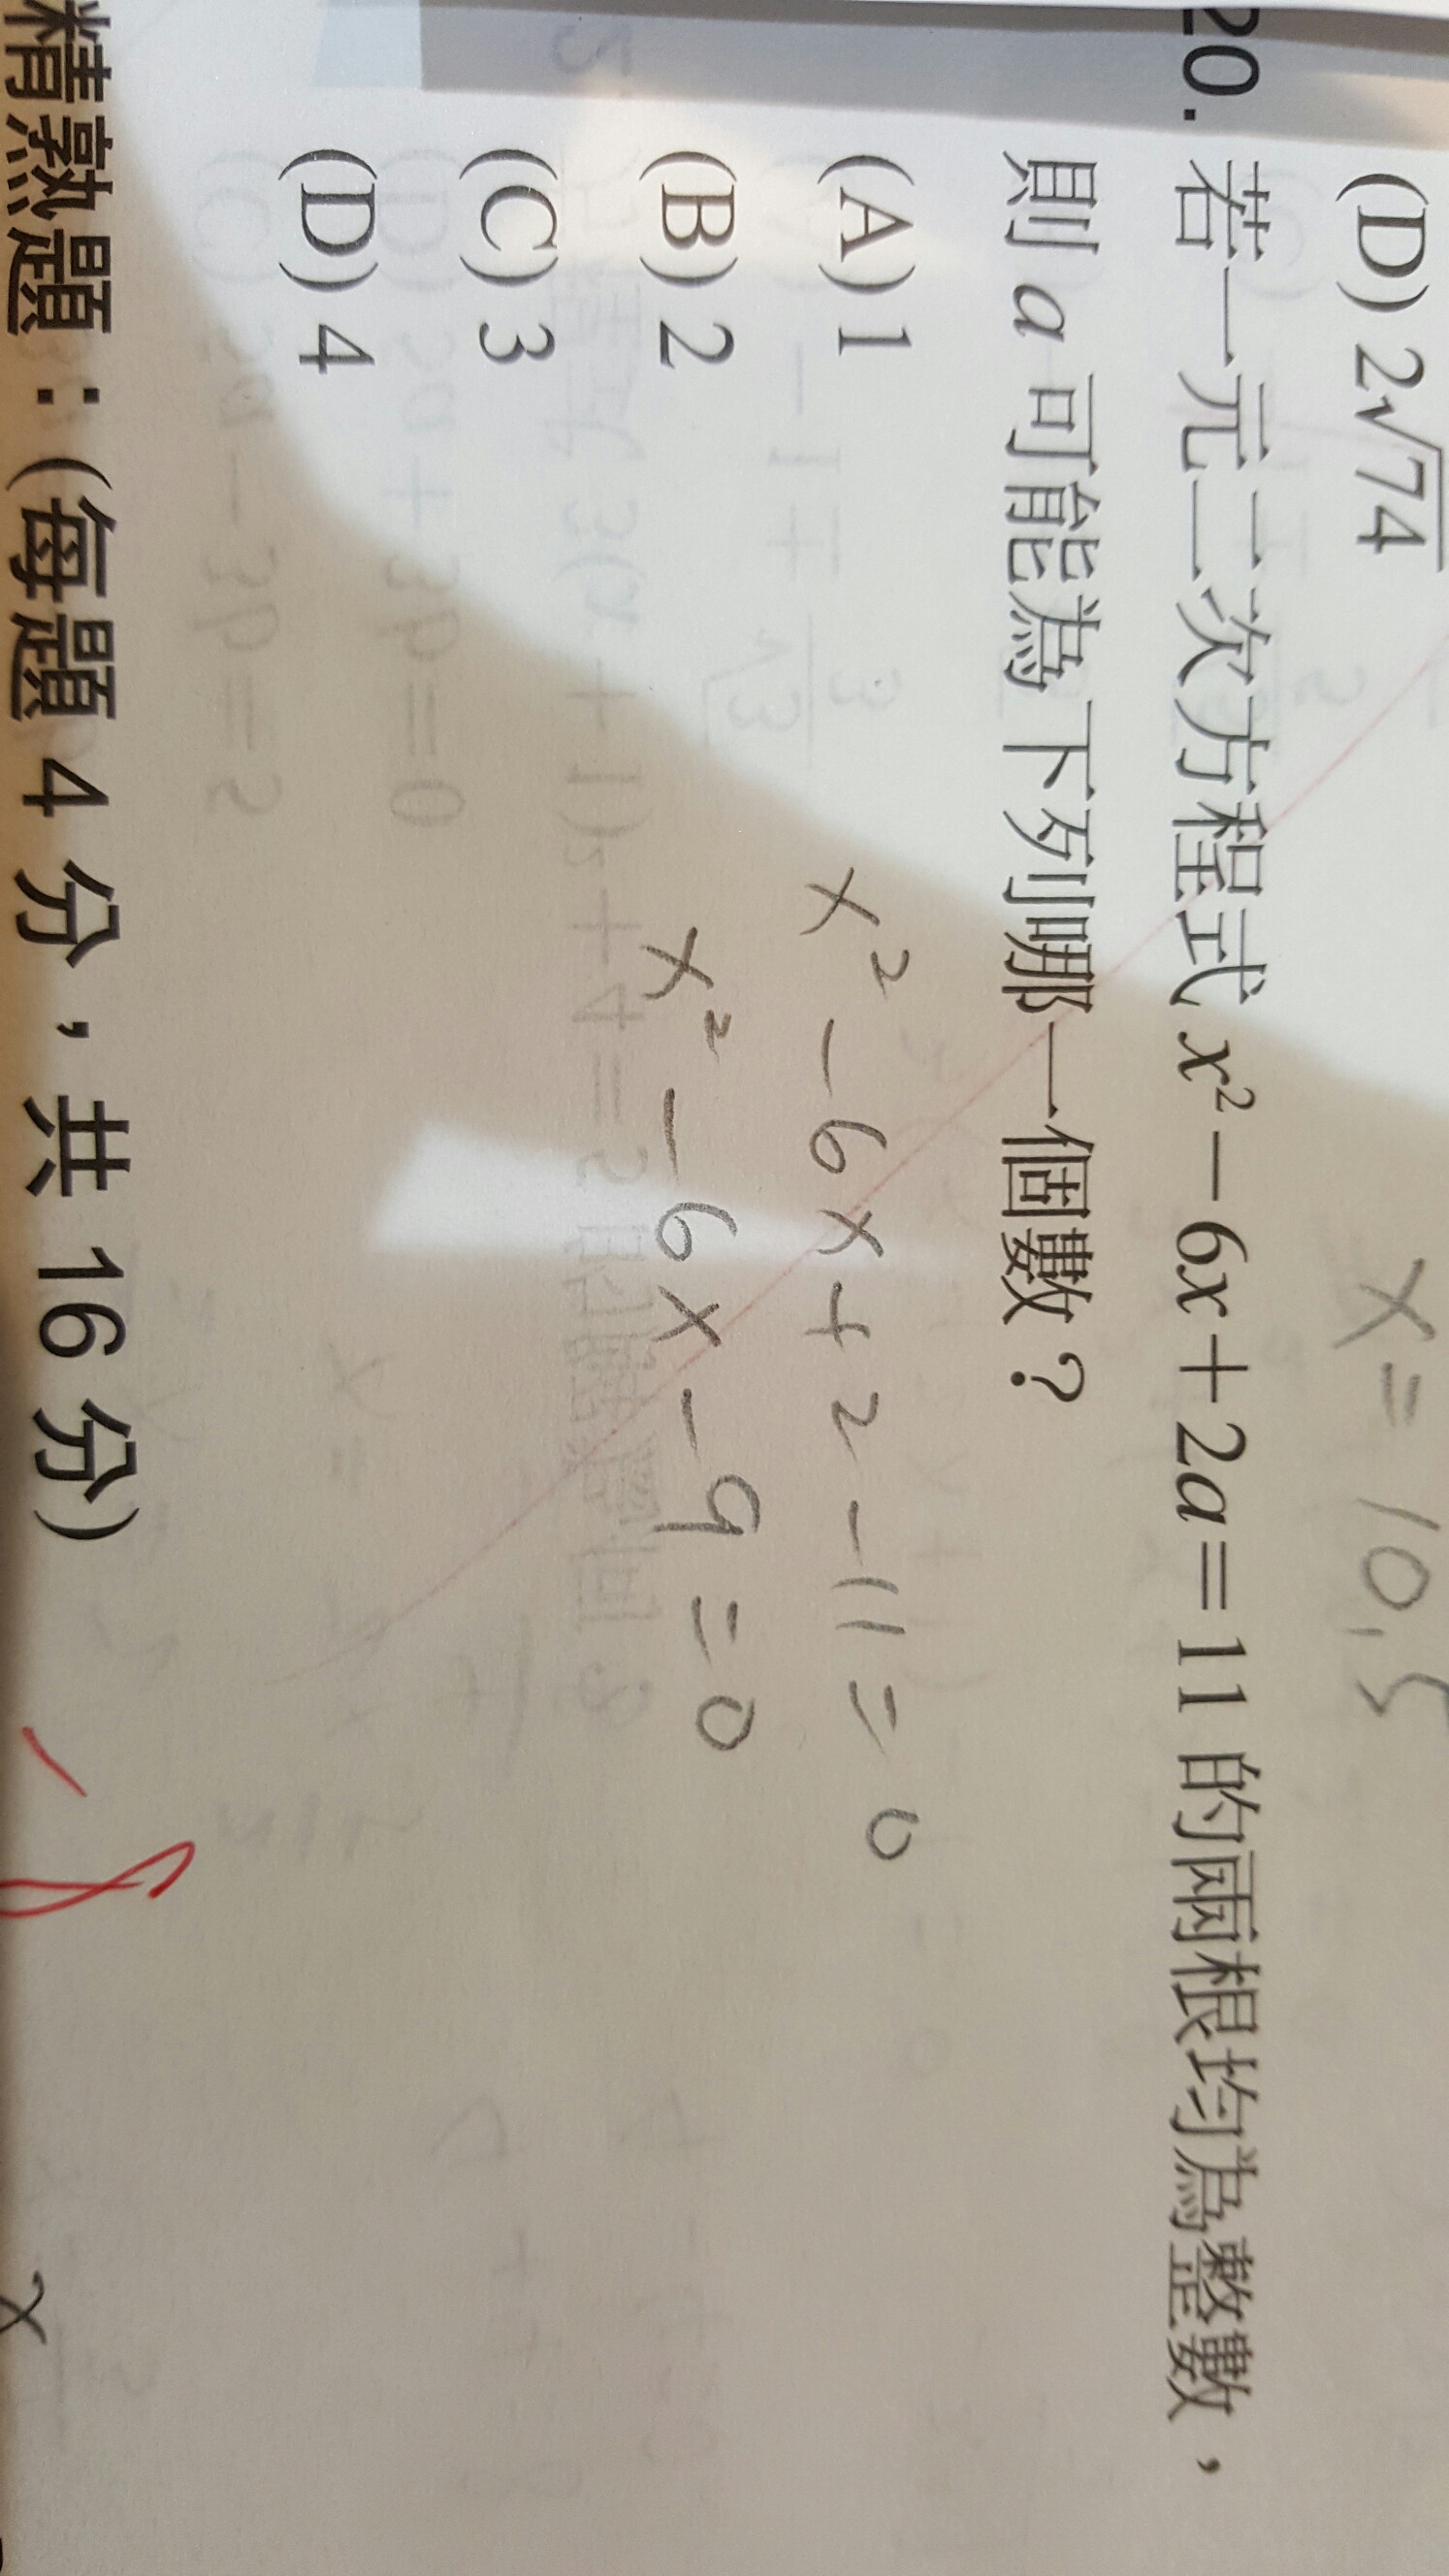 (D) 2√74
x = 10, 5
20. 若一元二次方程式 x² − 6x + 2a = 11 的兩根均為整數，
則 a 可能為下列哪一個數？
(A) 1
x² − 6x + 2 − 11 = 0
(B) 2
x² − 6x − 9 = 0
(C) 3
(D) 4
精熟題：(每題 4 分，共 16 分)
x